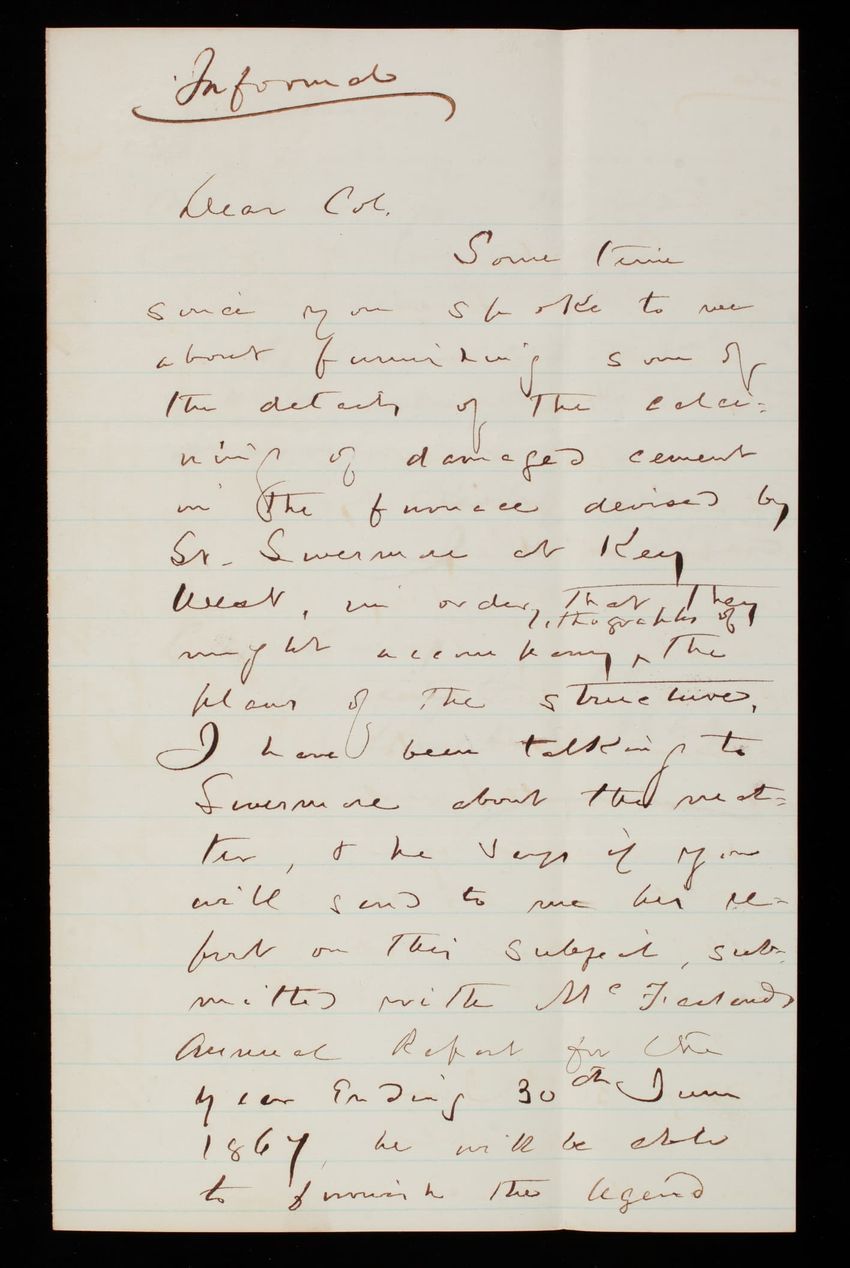 Informal
Dear Col.
Some time
since you spoke to me
about furnishing some of
the details of the calci=
ning of damaged cement
in the furnace devised by
Lt. Livermore at Key
West, in order, that they
might accompany ^ lithographs of the
plans of the structures,
I have been talking to
Livermore about the mat=
ter, & he says if you
will send to me his re=
port on this subject, sub=
mitted with McFarlands
Annual Report for the
year Ending 30th June
1867, he will be able
to furnish the legend